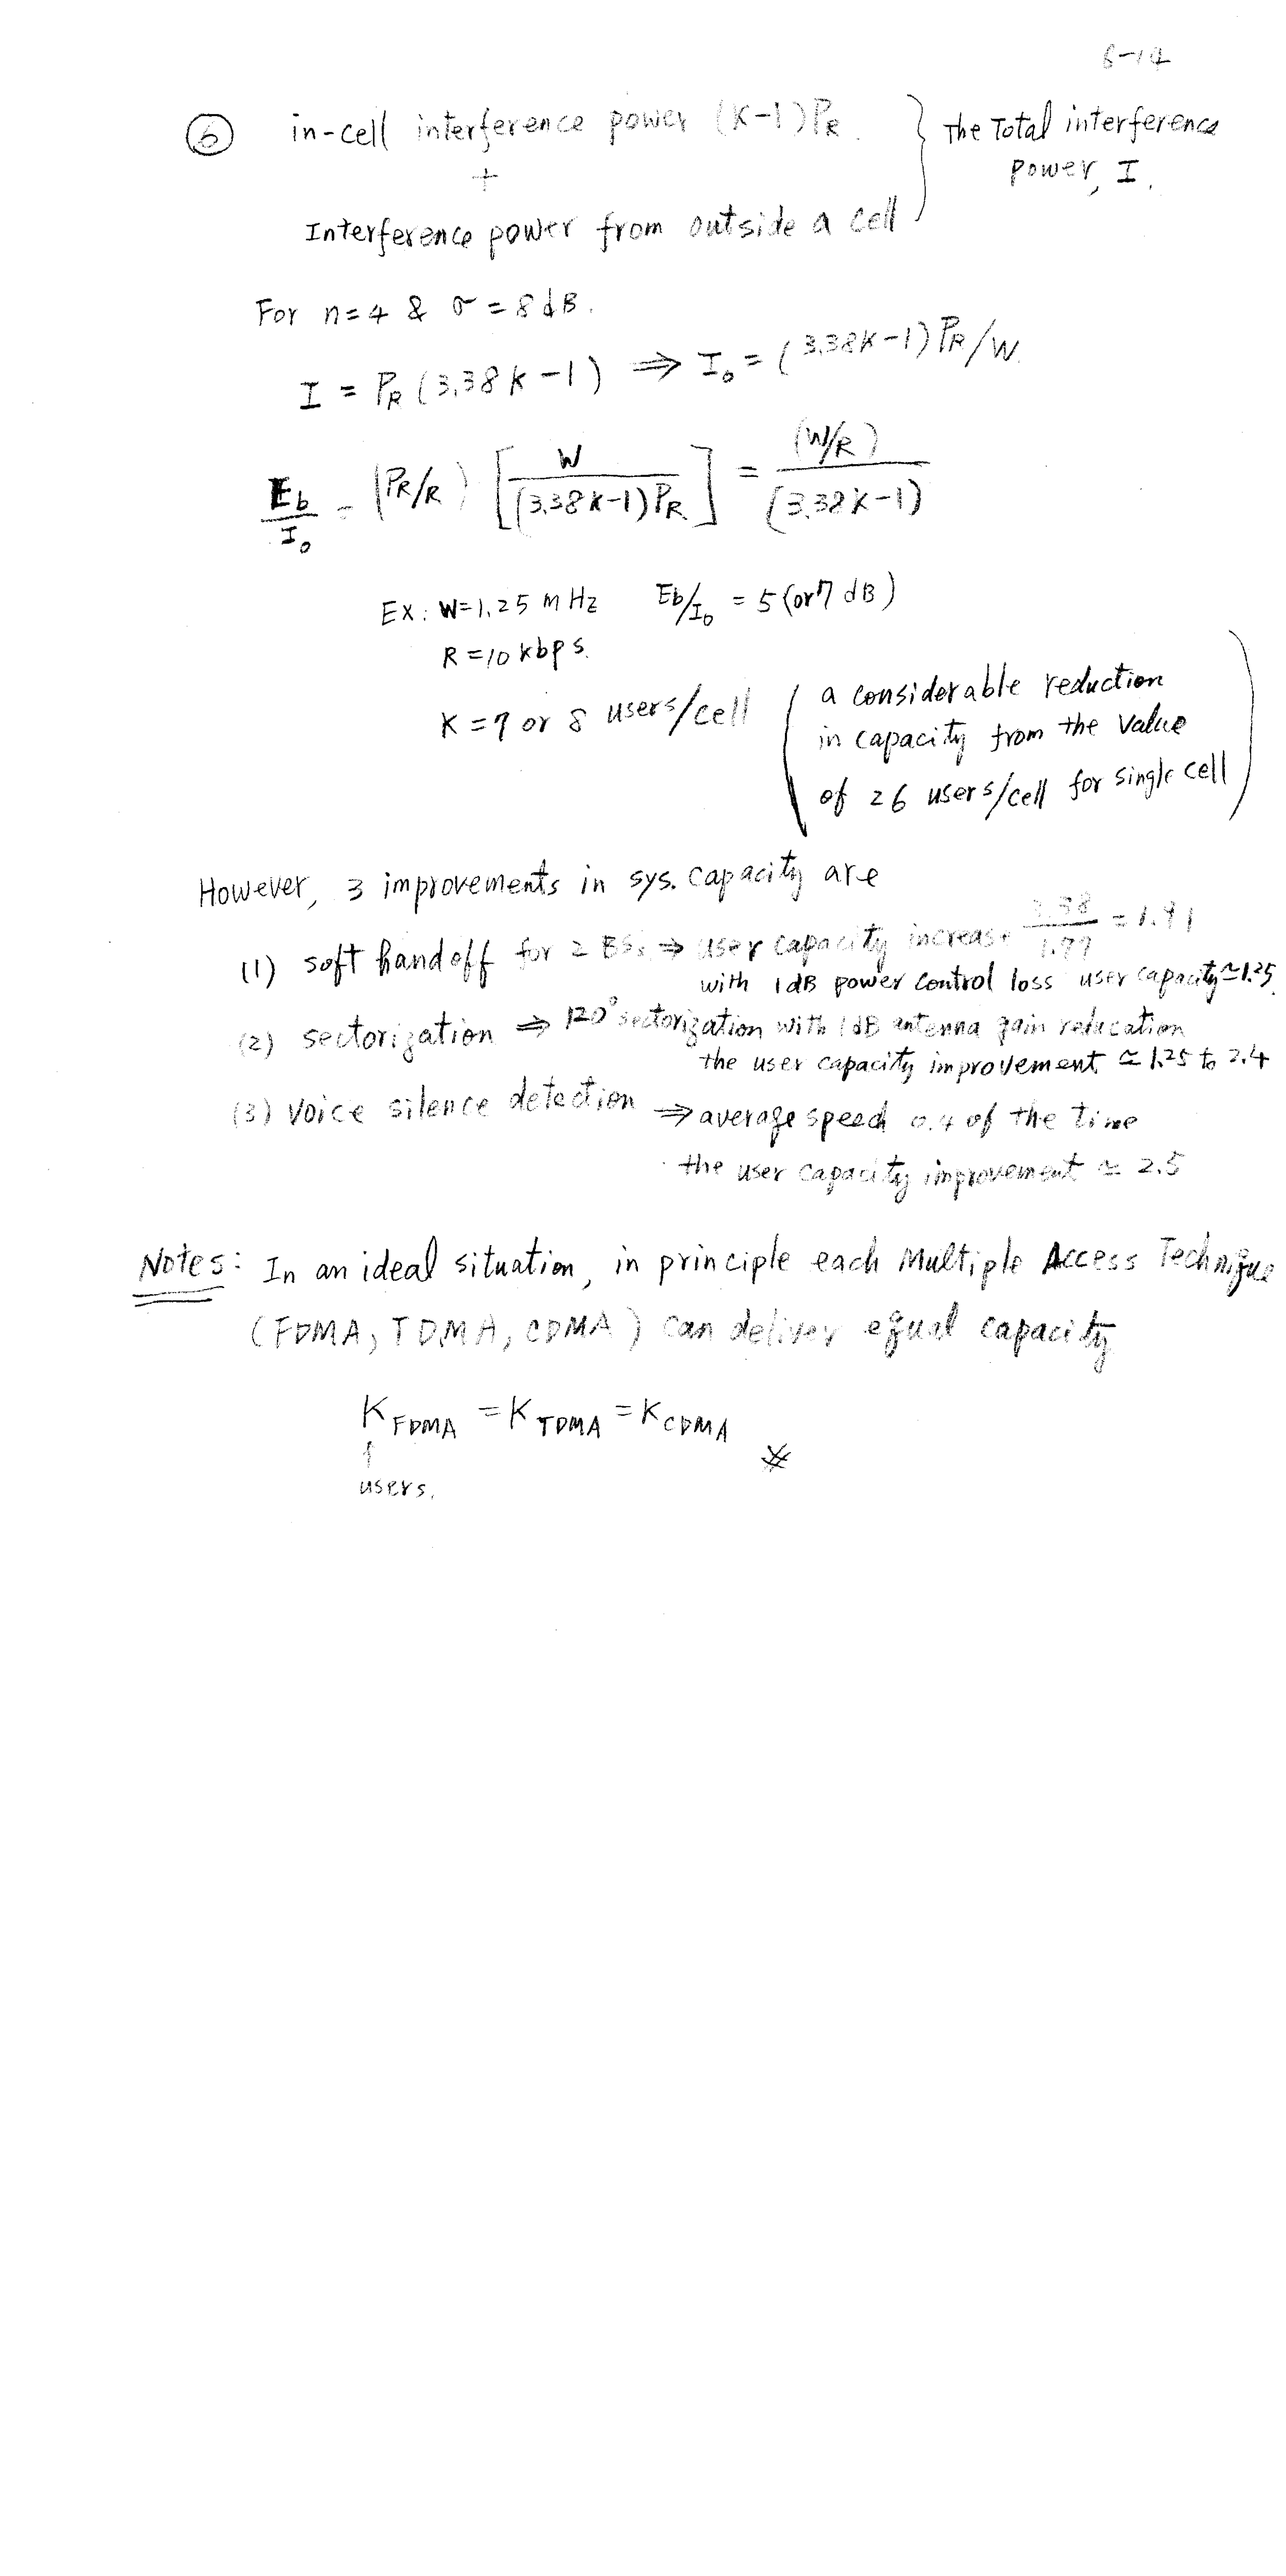 6-14
⑥ in-cell interference power (K-1)PR. } The Total interference
+ power, I.
Interference power from outside a cell
For n=4 & σ=8dB.
I = PR(3.38K-1) ⇒ I₀ = (3.38K-1)PR/W.
Eb/I₀ = (PR/R) [W/(3.38K-1)PR] = (W/R)/(3.38K-1)
Ex: W=1.25 MHz Eb/I₀ = 5 (or 7 dB)
R=10 kbps.
K=7 or 8 users/cell (a considerable reduction
in capacity from the value
of 26 users/cell for single cell)
However, 3 improvements in sys. capacity are
(1) soft handoff for 2 BSs ⇒ user capacity increase 3.38/1.77 = 1.91
with 1dB power control loss user capacity ≃ 1.25.
(2) sectorization ⇒ 120° sectorization with 1dB antenna gain reducation
the user capacity improvement ≃ 1.25 to 2.4
(3) Voice silence detection ⇒ average speech 0.4 of the time
the user capacity improvement ≃ 2.5
Notes: In an ideal situation, in principle each Multiple Access Technique
(FDMA, TDMA, CDMA) can deliver equal capacity
K FDMA = K TDMA = K CDMA
↑
users.